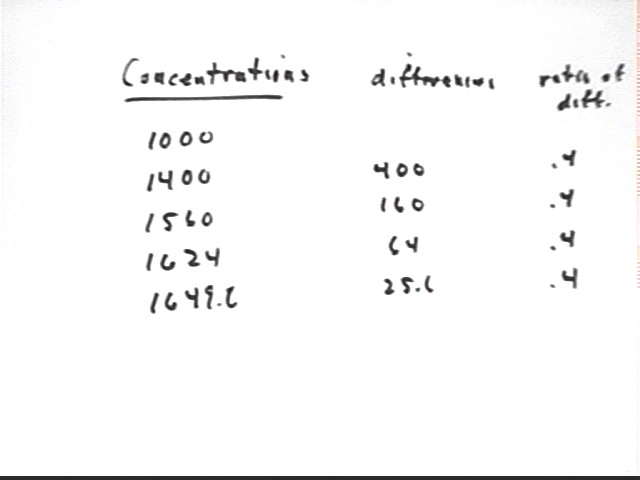 Concentrations differences ratio of diff.
1000
1400 400 .4
1560 160 .4
1624 64 .4
1649.6 25.6 .4